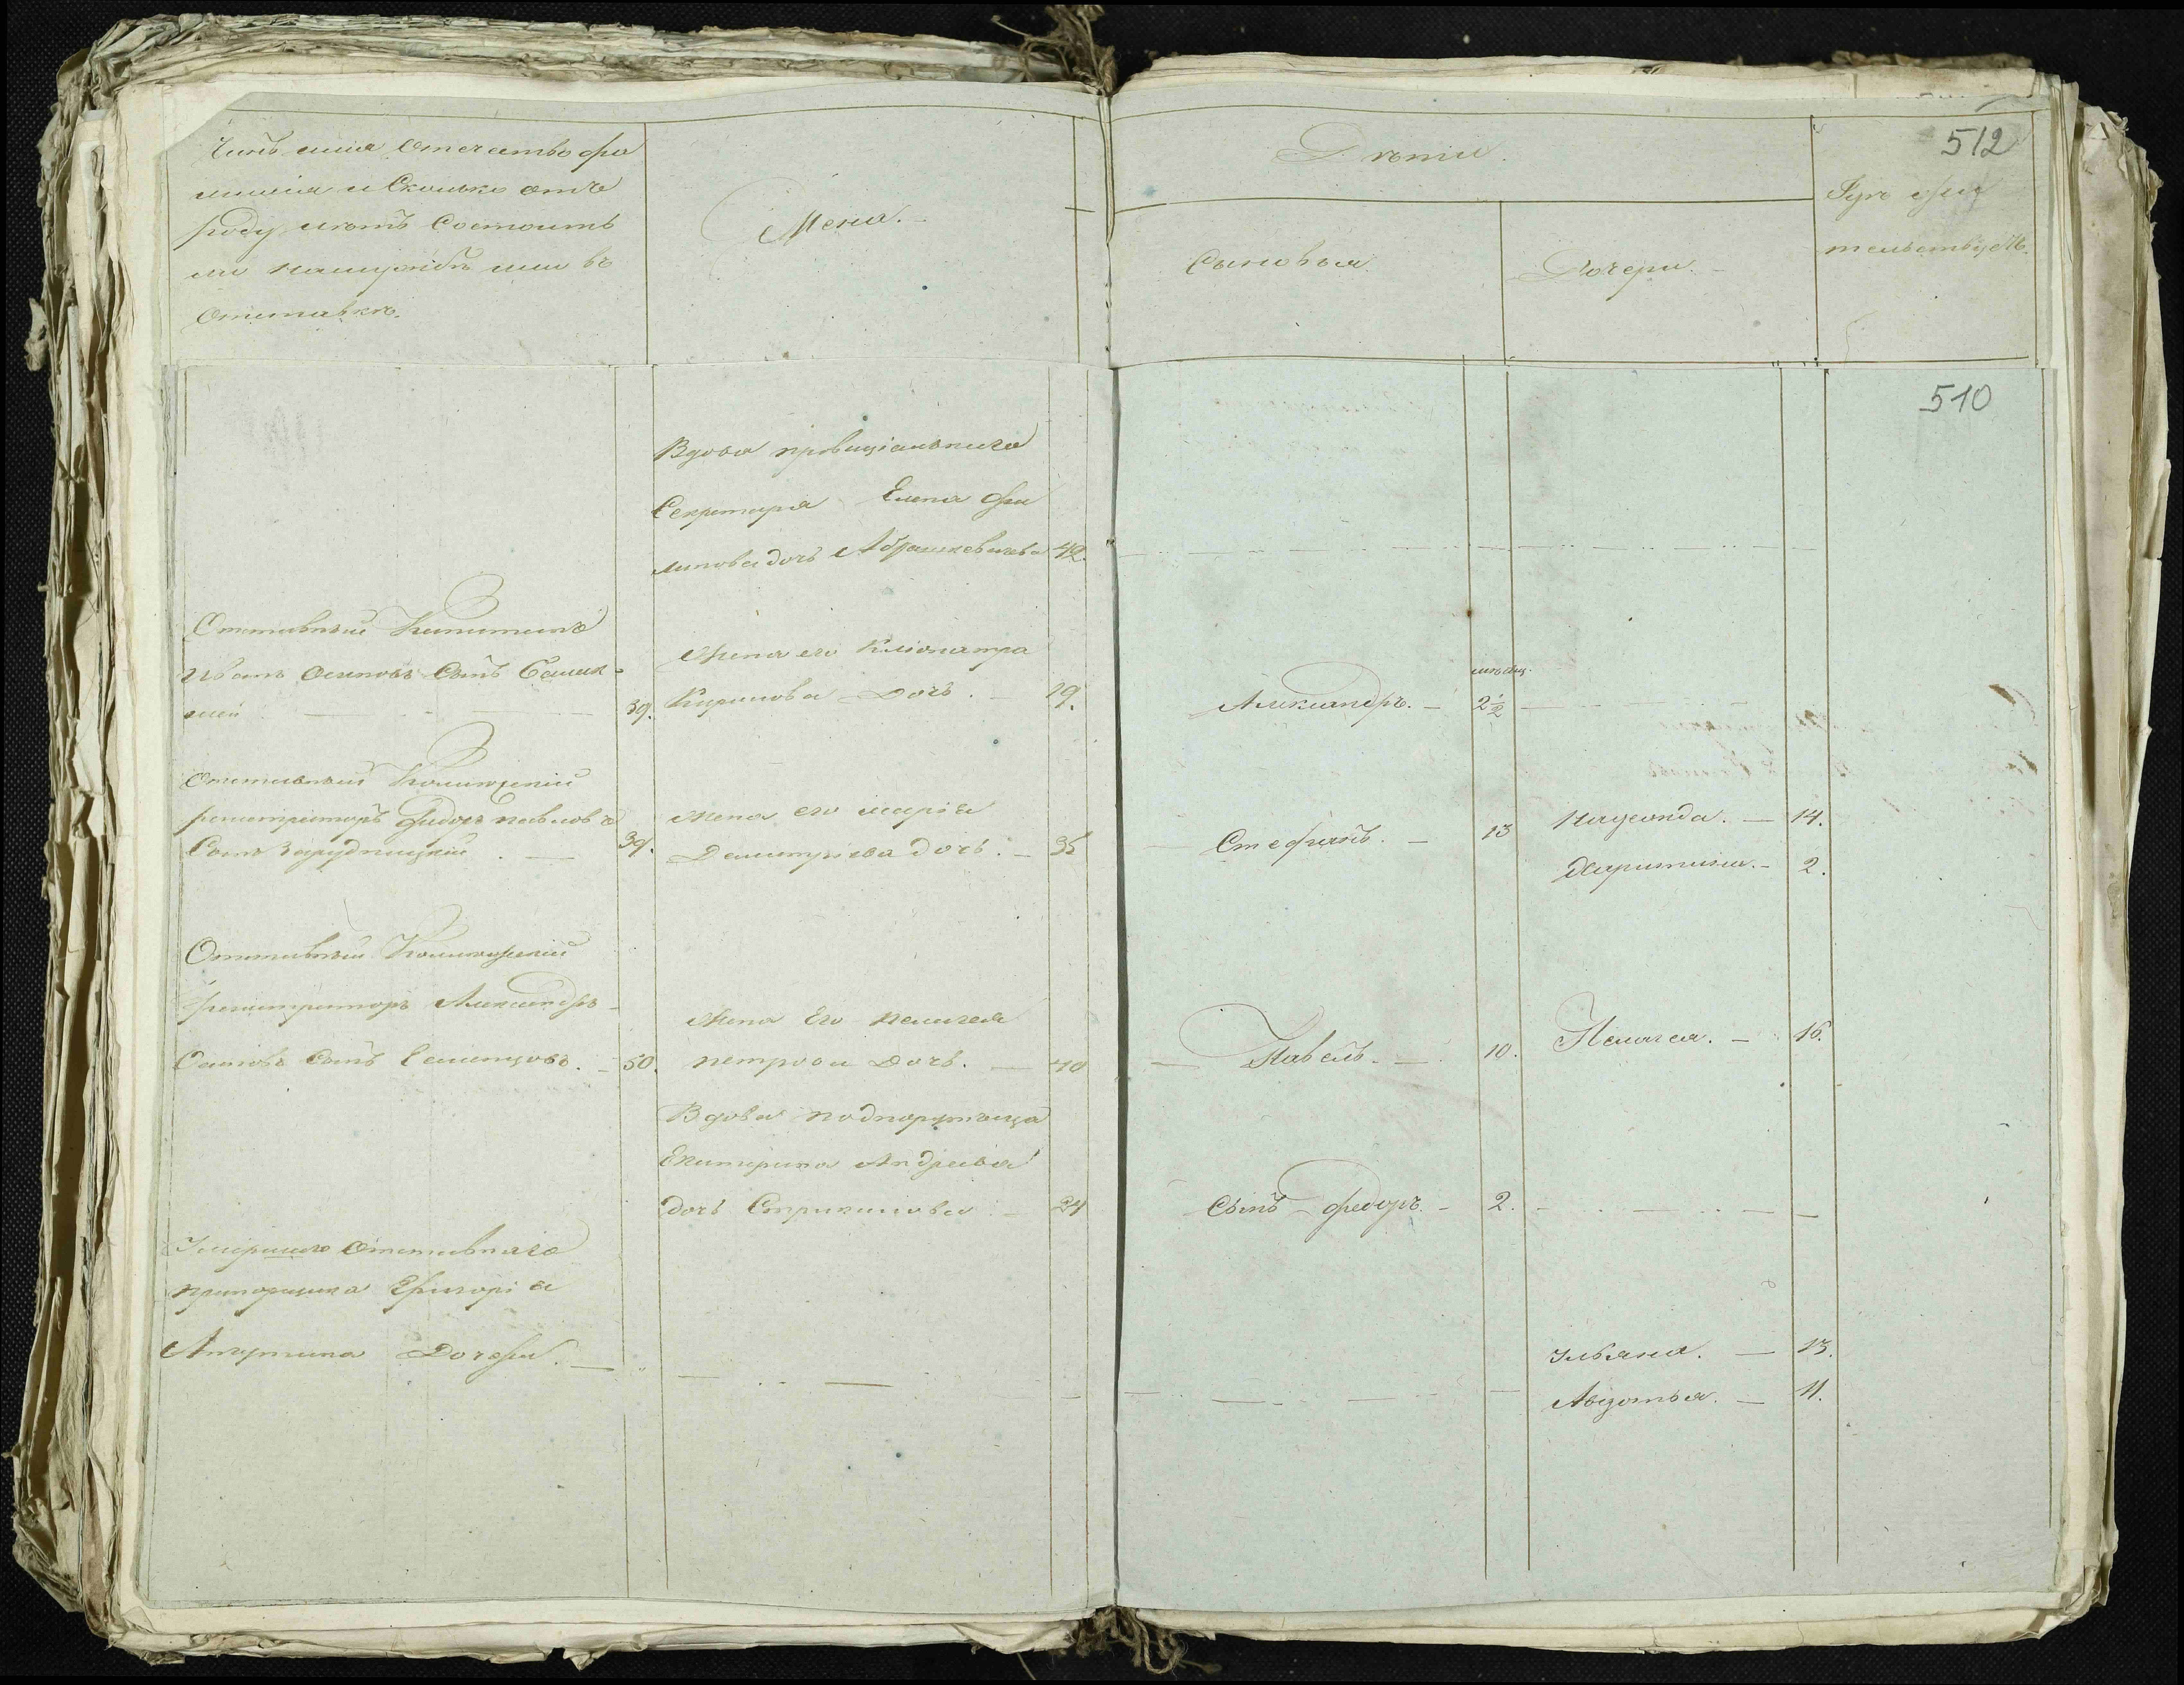 Чинъ имя Отечество фа
милия и Сколько отъ
роду летъ Состоитъ
ли наслужбе или въ
Отставке.
Жена.
Дети.
Сыновья.
Дочери.
512
Где жи
тельствуетъ.
510
Вдова провинциальнаго
Секретаря Елена Фи
липова дочь 42.
Отставный Капитанъ
Иванъ Осиповъ Сынъ
39.
Жена его Клиопатра
Кирилова Дочь. 29.
Александръ. 2½ месяц.
Отставный Колижский
регистраторъ Федоръ Павловъ
Сынъ Зарудницкий 39.
Жена его Мария
Деметриева дочь. 35
Стефанъ. 13
14.
Харитина. 2.
Отставный Колижский
регистраторъ Александръ
Осиповъ Сынъ 50.
Жена Его Пелагея
Петрова Дочь. 40
Павелъ. 10.
Пелагея. 16.
Вдова подпорутчица
Екатерина Андреева
дочь 24
Сынъ Федоръ. 2.
Умершаго Отставнаго
прапорщика Григория
Дочери.
Ульяна. 13.
Авдотья. 11.